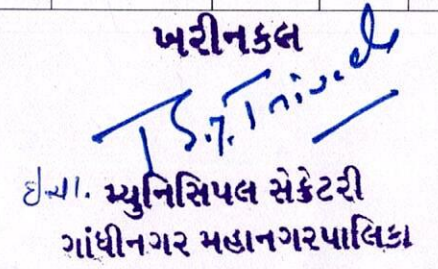 ખરીનકલ
ઇચા. મ્યુનિસિપલ સેક્રેટરી
ગાંધીનગર મહાનગરપાલિકા